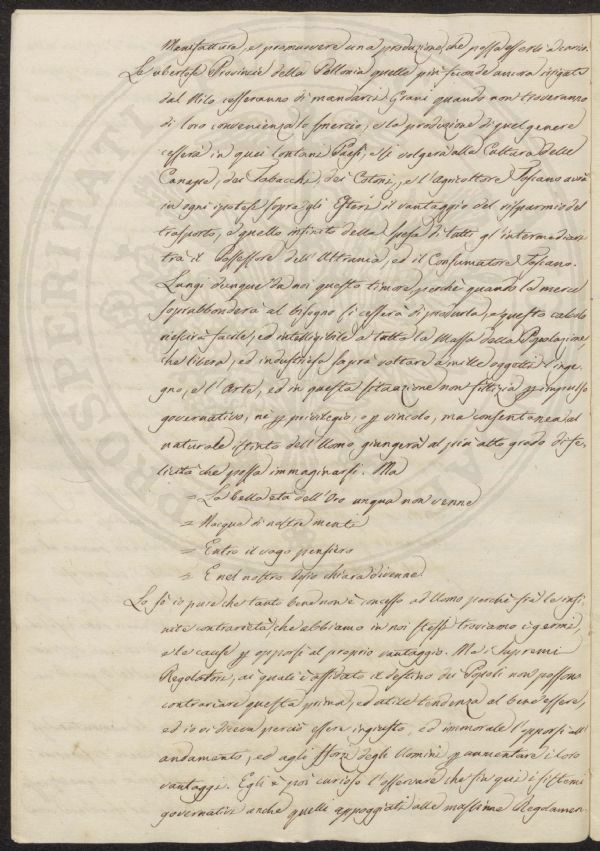 Manifattura, e promuovere una produzione, che possa offerti a cario.
Le ubertose Provincie della Pollonia quelle più feconde ancora irrigate
dal Nilo cesseranno di mandarci Grani quando non troveranno
di loro convenienza lo smercio, e la produzione di quel genere
cesserà in quei lontani Paesi, e si volgerà alla Cultura delle
Canape, dei Tabacchi, dei Cotoni, e l'Agricoltore Toscano avrà
in ogni ipotesi sopra gli Esteri il vantaggio del risparmio del
trasporto, e quello infinito della spesa di tutti gl'intermediari
trà il Possessore dell'Ultrania, ed il Consumatore Toscano.
Lungi dunque da noi questo timore, perchè quando la merce
soprabbonderà al bisogno si cesserà di produrla, e questo calcolo
riescirà facile, ed intelligibile a tutta la Massa della Popolazione
che libera, ed industriosa saprà voltare a mille oggetti l'inge-
gno, e l'Arte, ed in questa situazione non fittizia p impulso
governativo, nè p privilegio, o p vincolo, ma consentanea al
naturale istinto dell'Uomo giungerà al più alto grado di fe-
licità che possa immaginarsi. Ma
= La bella età dell'Oro unqua non venne
= Nacque di nostra mente
= Entro il vago pensiero
= E nel nostro desio chiara divenne.
Lo sò io pure che tanto bene non è concesso all'Uomo perchè frà le infi-
nite contrarietà, che abbiamo in noi stessi troviamo i germi,
e le cause p opporsi al proprio vantaggio. Ma i Supremi
Regolatori, ai quali è affidato il destino dei Popoli non possono
contrariare questa prima, ed utile tendenza al ben'essere,
ed io vi diceva perciò essere ingiusto, ed immorale l'opporsi all'
andamento, ed agli sforzi degli Uomini p aumentare i loro
vantaggi. Egli è poi curioso l'osservare che fin qui i sistemi
governativi anche quelli appoggiati alle massime Regolamen-
PROSPERITATI